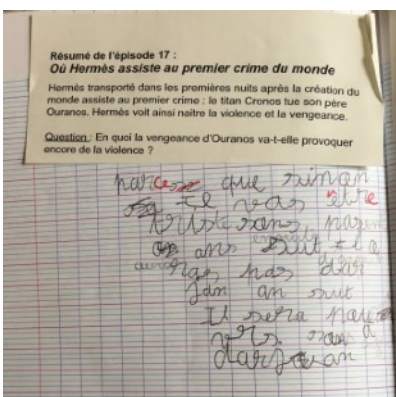 Résumé de l'épisode 17 :
Où Hermès assiste au premier crime du monde
Hermès transporté dans les premières nuits après la création du
monde assiste au premier crime : le titan Cronos tue son père
Ouranos. Hermès voit ainsi naitre la violence et la vengeance.
Question : En quoi la vengeance d'Ouranos va-t-elle provoquer
encore de la violence ?
parce que sinan
il vas être
triste sans paren
ans suit
ras pas dar
jan an suit
Il sera pau
vre
darjan